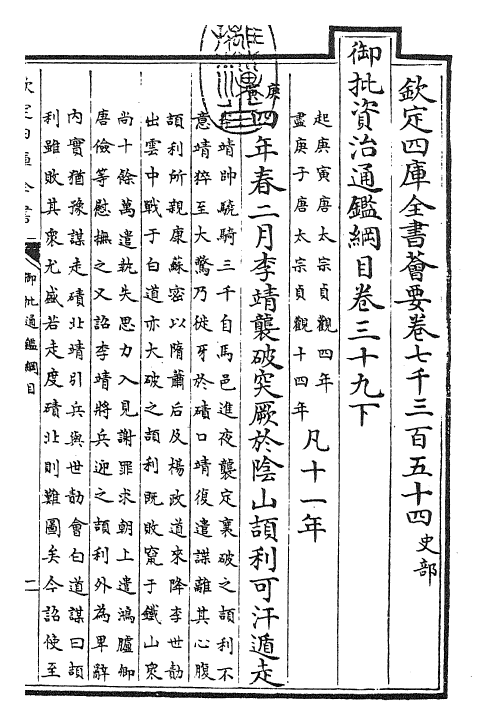 欽定四庫全書薈要卷七千三百五十四 史部
御批資治通鑑綱目卷三十九下
起庚寅唐太宗貞觀四年
盡庚子唐太宗貞觀十四年 凡十一年
庚寅 四年春二月李靖襲破突厥於陰山頡利可汗遁走
李靖帥驍騎三千自馬邑進夜襲定襄破之頡利不
意靖猝至大驚乃徙牙於磧口靖復遣諜離其心腹
頡利所親康蘇密以隋蕭后及楊政道來降李世勣
出雲中戰于白道亦大破之頡利既敗竄于鐵山衆
尚十餘萬遣執失思力入見謝罪求朝上遣鴻臚卿
唐儉等慰撫之又詔李靖將兵迎之頡利外為卑辭
內實猶豫謀走磧北靖引兵與世勣會白道謀曰頡
利雖敗其衆尤盛若走度磧北則難圖矣今詔使至
欽定四庫全書
御批通鑑綱目
二